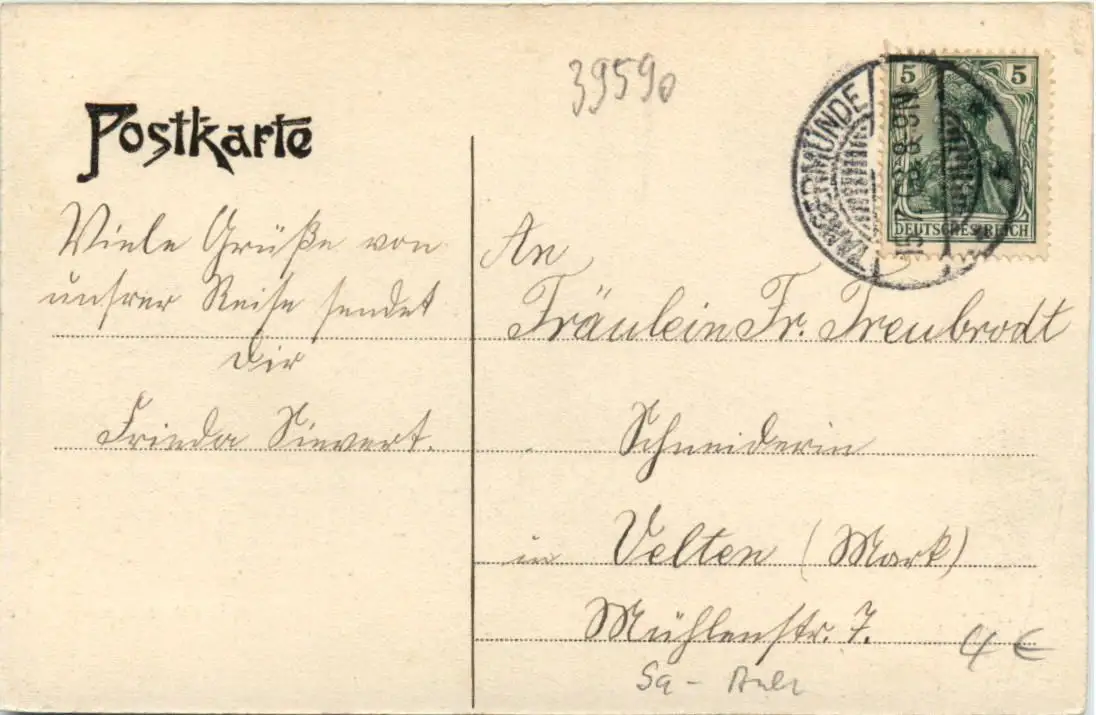 39590
Postkarte
TANGERMÜNDE
8-9N
5 5
DEUTSCHES REICH
Viele Grüße von
unsrer Reise sendet
Dir
Frieda Sievert.
An
Fräulein Fr. Treubrodt
Schneiderin
in Velten (Mark)
Mühlenstr. 7.
4 €